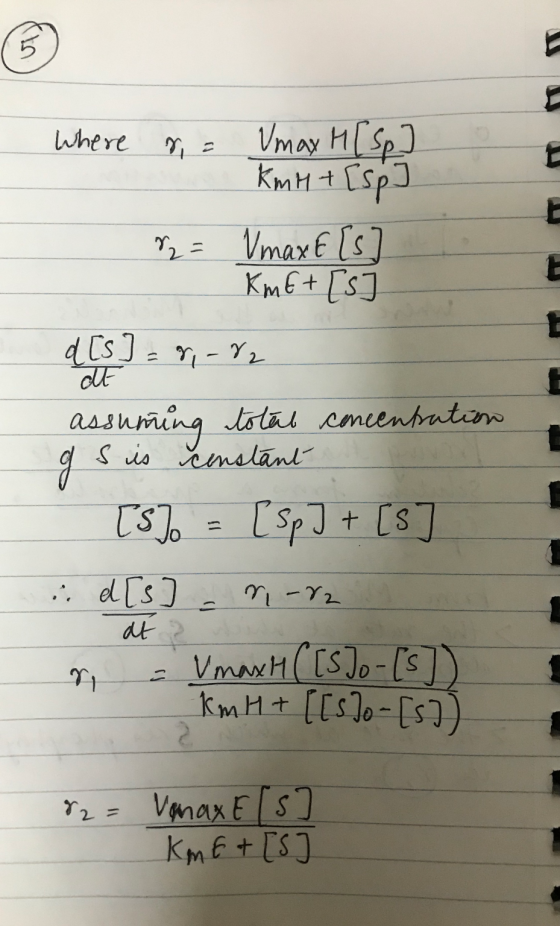 5
Where r₁ = VmaxH[Sp] / KmH + [Sp]
r₂ = VmaxE[S] / KmE + [S]
d[S]/dt = r₁ - r₂
assuming total concentration
of S is constant
[S]₀ = [Sp] + [S]
∴ d[S]/dt = r₁ - r₂
r₁ = VmaxH([S]₀-[S]) / KmH + [[S]₀-[S])
r₂ = VmaxE[S] / KmE + [S]